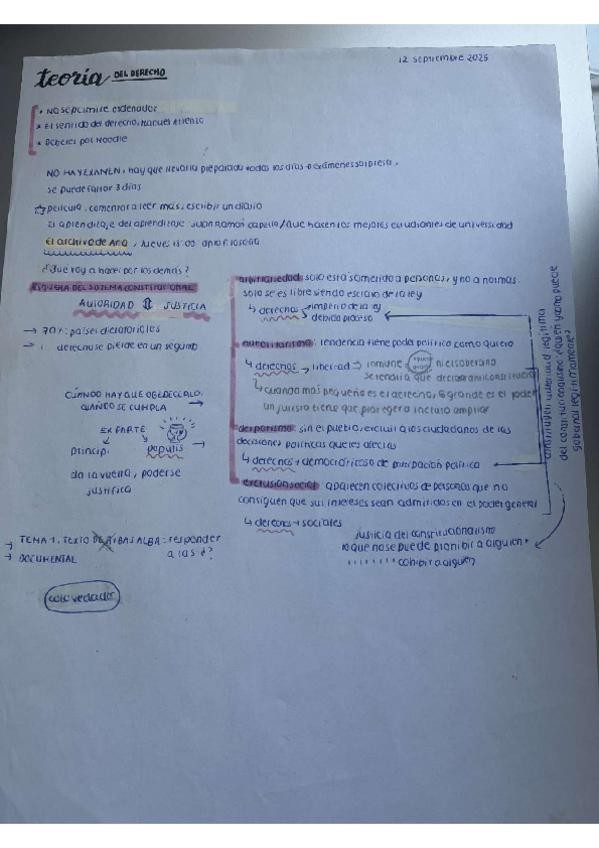 teoría DEL DERECHO
12 septiembre 2025
• NO se permite ordenador
* El sentido del derecho, Manuel Atienza
* Deberes por Moodle
NO HAY EXAMEN, hay que llevarlo preparado todos los días
se puede faltar 3 días
película, comentar a leer más, escribir un diario
El aprendizaje del aprendizaje Juan Ramón Capella / Qué hacen los mejores estudiantes de universidad
El archivo de Ana, jueves
¿Qué voy a hacer por los demás?
ESQUEMA DEL SISTEMA CONSTITUCIONAL
AUTORIDAD ⇕ JUSTICIA
→ 70%: países dictatoriales
→ derecho se pierde en un segundo
CUÁNDO HAY QUE OBEDECERLO,
CUÁNDO SE CUMPLA →
EX PARTE
principi populis →
da la vuelta, poderse
justifica
→ TEMA 1, TEXTO DE RIBAS ALBA: responder
a las ¿?
→ DOCUMENTAL
arbitrariedad: solo está sometido a personas, y no a normas.
solo se es libre siendo esclavo de la ley
↳ derechos → imperio de la ley
→ debido proceso
autoritarismo: tendencia tiene poder político como quiero
↳ derechos → libertad → inmune ni el soberano
↳ cuando más pequeño es el derecho, + grande es el poder
un jurista tiene que proteger e incluso ampliar
despotismo: sin el pueblo, excluir a los ciudadanos de las
decisiones políticas que les afectas
↳ derechos → democráticos o de participación política
exclusión social: aparecen colectivos de personas que no
consiguen que sus intereses sean admitidos en el poder general
↳ derechos → sociales
justicia del constitucionalismo
lo que no se puede prohibir a alguien +
" " " " " " cohibir a alguien
constituyen autoridad legítima
del constitucionalismo: ¿quién y cómo puede
gobernar legítimamente?